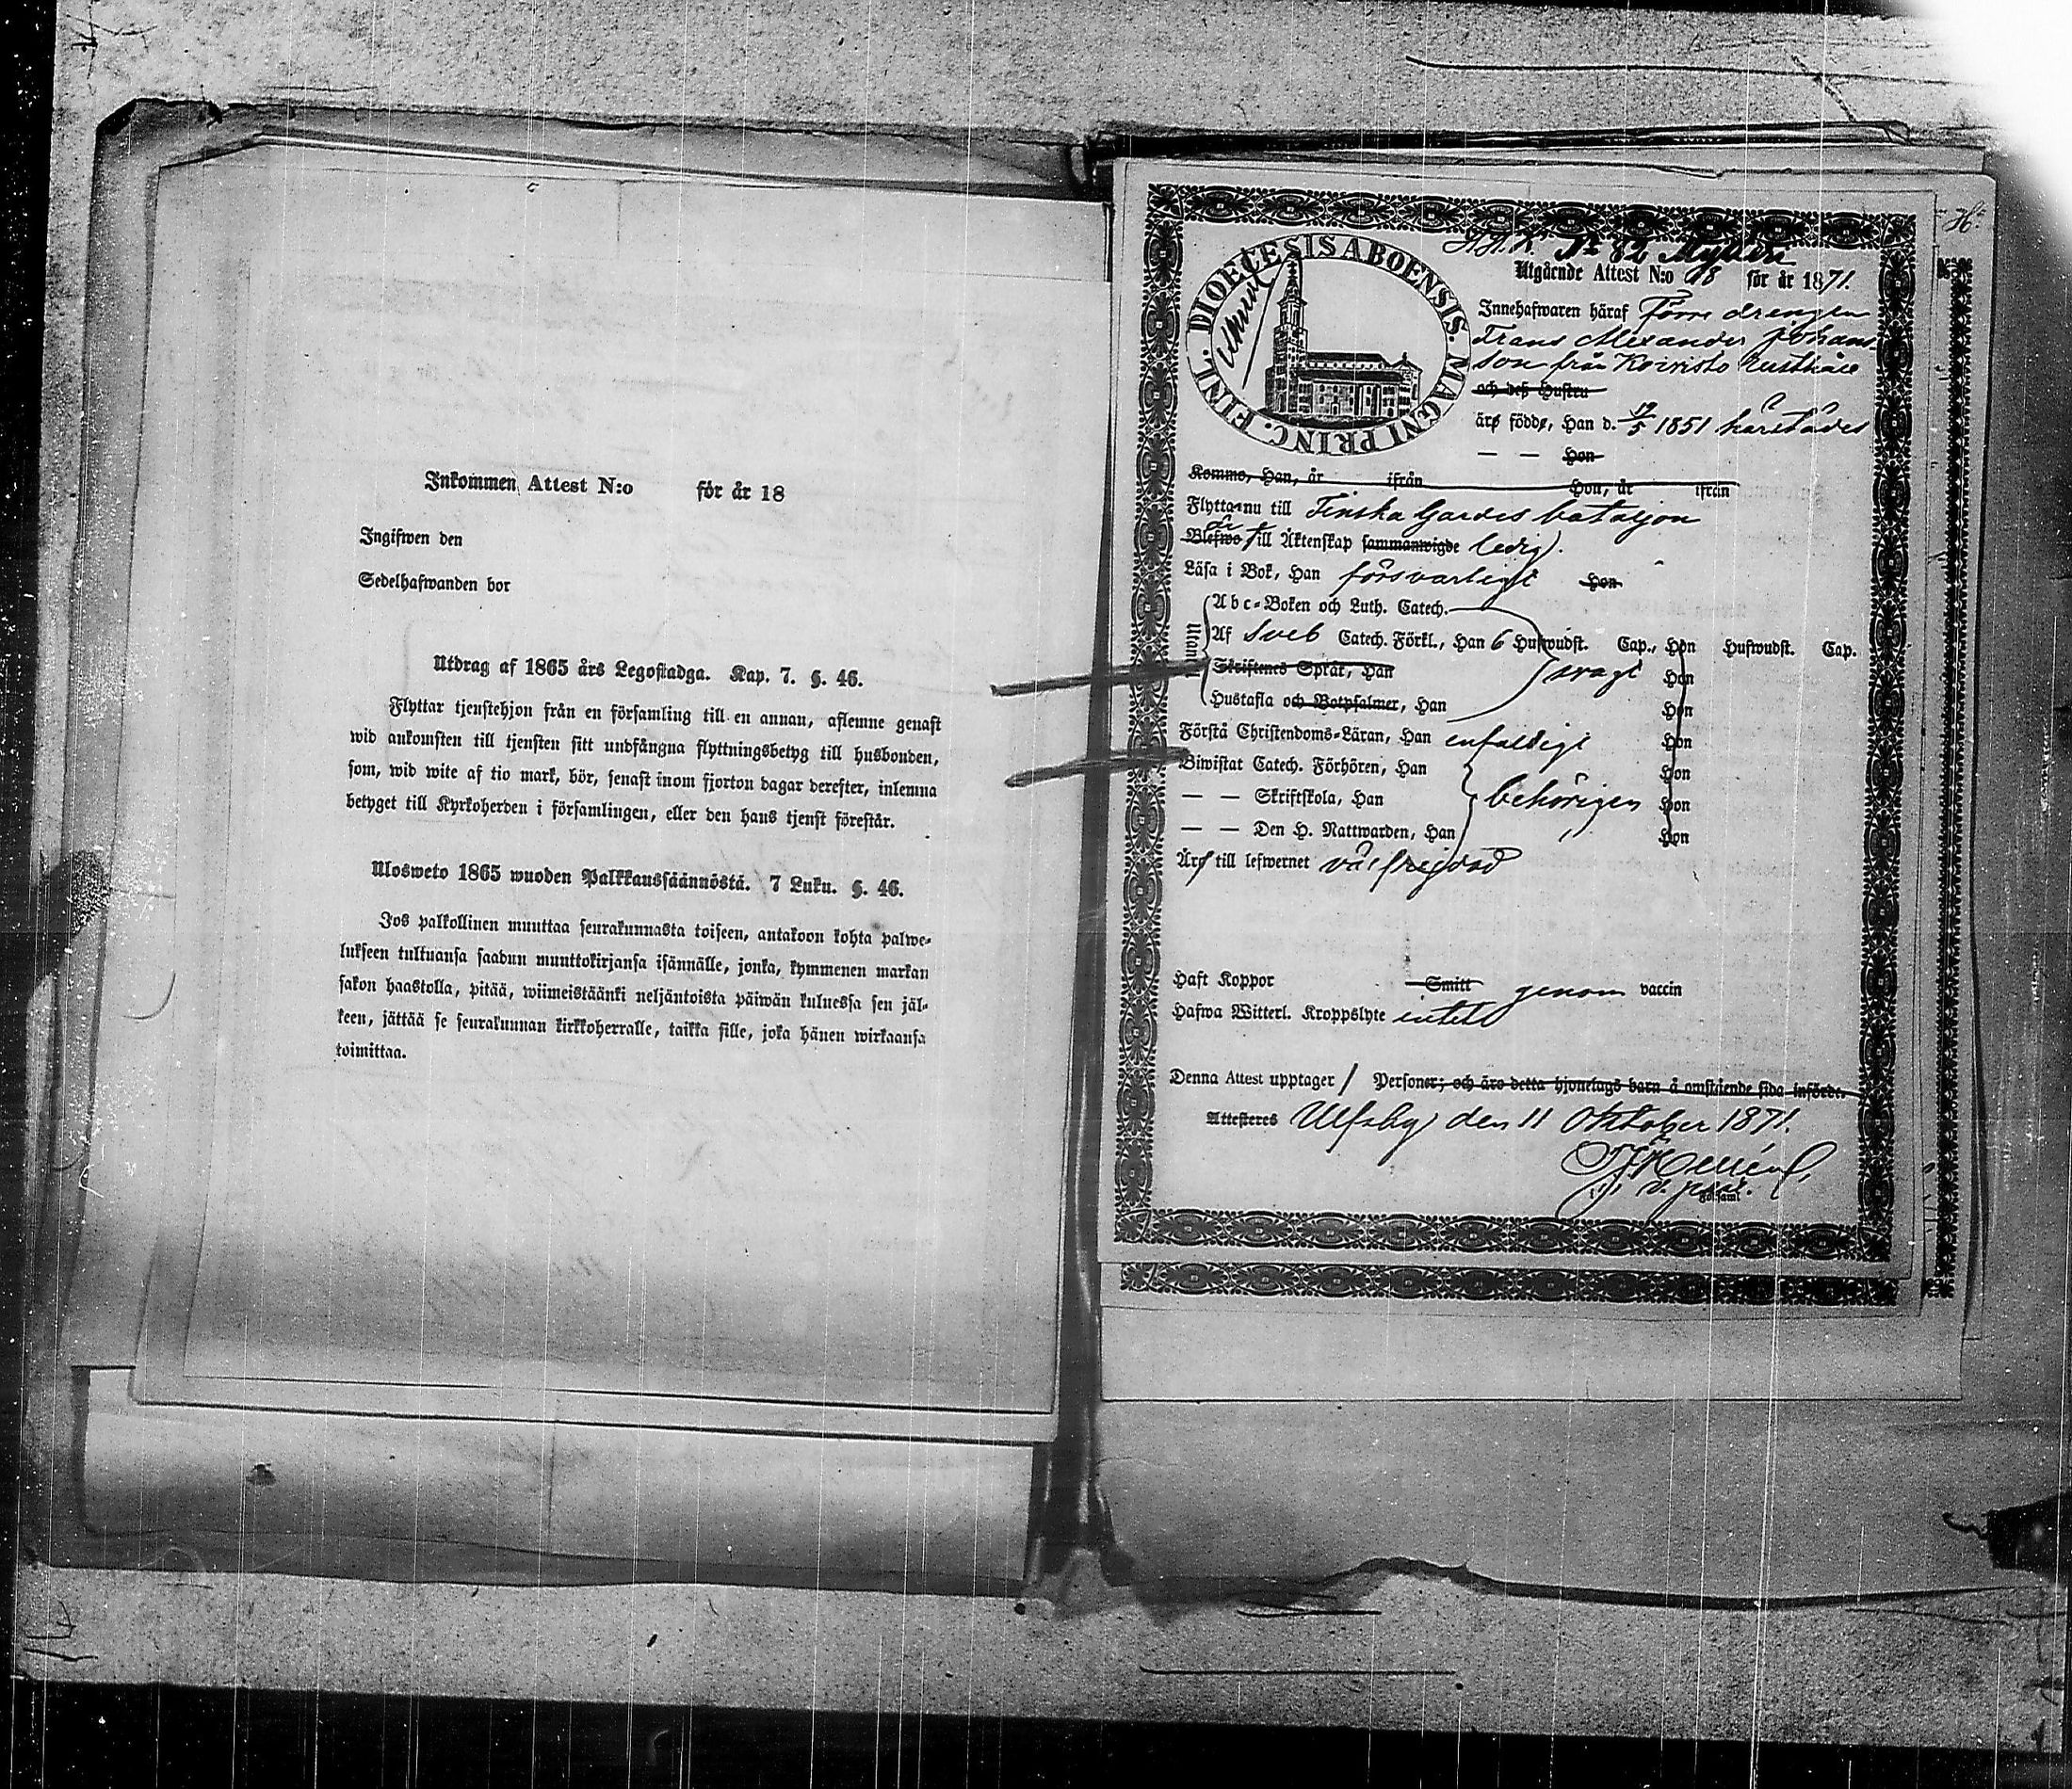 Inkommen Attest N:o för år 18
Ingifwen den
Sedelhafwanden bor
Utdrag af 1865 års Legostadga. Kap. 7. §. 46.
Flyttar tjenstehjon från en församling till en annan, aflemne genast
wid ankomsten till tjensten sitt undfångna flyttningsbetyg till husbonden,
som, wid wite af tio mark, bör, senast inom fjorton dagar derefter, inlemna
betyget till Kyrkoherden i församlingen, eller den hans tjenst förestår.
Ulosweto 1865 wuoden Palkkaussäännöstä. 7 Luku. §. 46.
Jos palkollinen muuttaa seurakunnasta toiseen, antakoon kohta palwe-
lukseen tultuansa saadun muuttokirjansa isännälle, jonka, kymmenen markan
sakon haastolla, pitää, wiimeistäänki neljäntoista päiwän kuluessa sen jäl-
keen, jättää se seurakunnan kirkkoherralle, taikka sille, joka hänen wirkaansa
toimittaa.
N:o 82
DIOECESIS ABOENSIS. MAGNI PRINC. FINL.
Utgående Attest N:o 98 för år 1871.
Innehafwaren häraf Förre drengen
Frans Alexander Johans-
son från Koivisto Rusthåll
och deß Hustru
äro födde, Han d. 19/5 1851 härstädes
— — Hon
Kommo, Han, år ifrån Hon, år ifrån
Flytta nu till Finska Gardes bataljon
är
Blefwo till Äktenskap sammanwigde ledig.
Läsa i Bok, Han försvarligt Hon
Utantill
Abc-Boken och Luth. Catech.
Af Sveb Catech. Förkl., Han 6 Hufwudst. Cap., Hon Hufwudst. Cap.
Skriftenes Språk, Han svagt Hon
Hustafla och Botpsalmer, Han Hon
Förstå Christendoms-Läran, Han enfaldigt Hon
Biwistat Catech. Förhören, Han Hon
— — Skriftskola, Han behörigen Hon
— — Den H. Nattwarden, Han Hon
Äro till lefwernet välfrejdad
Haft Koppor Smitt genom vaccin
Hafwa Witterl. Kroppslyte intet
Denna Attest upptager 1 Personer; och äro detta hjonelags barn å omstående sida införde.
Attesteras Ulfsby den 11 Oktober 1871.
v. past.